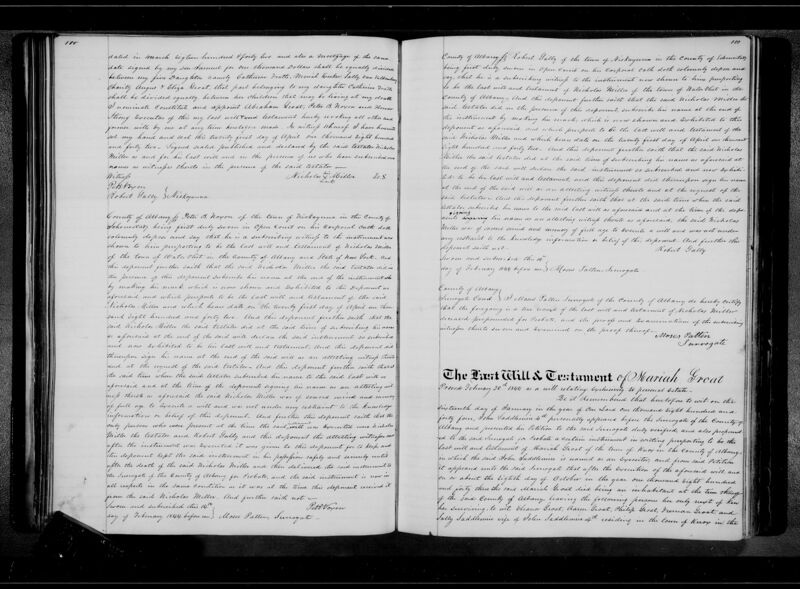 dated in March Eighteen hundred & forty two and also a Mortgage of the same
date signed by my son Samuel for One thousand Dollars shall be equally divided
between my five Daughters namely Catharine Truth, Moriah Sally Van Valkenburg
Charity Angus & Eliza Groat that part belonging to my daughter Catharine
shall be divided equally between her children that may be living at my death
I nominate Constitute and appoint Abraham Groat, Peter B. Noxon and
Executors of this my last will and testament hereby revoking all other and
former wills by me at any time heretofore made. In witness whereof I have hereunto
set my hand and seal the twenty first day of April one thousand eight hundred
and forty two. Signed sealed published and declared by the said testator Nicholas
Miller as and for his last will and in the presence of us who have subscribed our
names as witnesses in the presence of the said testator
Witness Nicholas Miller L.S.
Robert Gally } Niskayuna
County of Albany ss Peter B. Noxon of the town of Niskayuna in the County of
Schenectady being first duly sworn in Open Court on his Corporal Oath did
solemnly depose and say that he is a subscribing witness to the instrument now
shown to him purporting to be the last will and testament of Nicholas Miller
of the town of Watervliet in the County of Albany and State of New York. And
this deponent further saith that the said Nicholas Miller the said testator did in
the presence of this deponent subscribe his name at the end of the instrument
by making his mark which is now shown and Exhibited to this deponent as
aforesaid and which purports to be the last will and testament of the said
Nicholas Miller and which bears date the twenty first day of April one thou
sand eight hundred and forty two. And this deponent further saith that the
said Nicholas Miller the said testator did at the time of subscribing his name
as aforesaid at the end of the said will declare the said instrument so subscribed
and now exhibited to be his last will and testament. And this deponent did
thereupon sign his name at the end of the said will as an attesting witness thereto
and at the request of the said testator. And this deponent further saith that at
the said time when the said testator subscribed his name to the said last will as
aforesaid and at the time of the deponent signing his name as an attesting wit
ness thereto as aforesaid the said Nicholas Miller was of sound mind and memory
of full age to Execute a will and was not under any restraint to the knowledge
information or belief of this deponent. And further this deponent saith that the
only persons who were present at the time the said will was Executed were Nicholas
Miller the testator and Robert Gally and this deponent the attesting witnesses
after the instrument was Executed it was given to this deponent to keep and
this deponent kept the said instrument in his possession safely and securely until
after the death of the said Nicholas Miller and then delivered the said instrument to
the Surrogate of the County of Albany for Probate, and the said instrument is now in
all respects in the same condition as it was at the time this deponent received it
from the said Nicholas Miller. And further said not
Sworn and subscribed this 14th
day of February 1844 before me } Moses Patten Surrogate
County of Albany ss Robert Gally of the town of Niskayuna in the County of Schenectady
being first duly sworn in Open Court on his Corporal Oath doth solemnly depose and
say, that he is a subscribing witness to the instrument now shown to him purporting
to be the last will and testament of Nicholas Miller of the town of Watervliet in the
County of Albany. And this deponent further saith that the said Nicholas Miller the
said testator did in the presence of this deponent, subscribe his name at the end of the
instrument by making his mark, which is now shown and Exhibited to this
deponent as aforesaid and which purports to be the last will and testament of the
said Nicholas Miller and which bears date on the twenty first day of April one thousand
eight hundred and forty two. And this deponent further saith that the said Nicholas
Miller the said testator did at the time of subscribing his name as aforesaid at
the end of the said will declare the said instrument so subscribed and now exhibi
ted to be his last will and testament, and this deponent did thereupon sign his name
at the end of the said will as an attesting witness thereto and at the request of the
said testator. And this deponent further saith that at the said time when the said
testator subscribed his name to the said last will as aforesaid and at the time of the depo
nent signing his name as an attesting witness thereto as aforesaid, the said Nicholas
Miller was of sound mind and memory of full age to execute a will and was not under
any restraint to the knowledge information or belief of the deponent. And further this
deponent saith not.
Robert Gally
Sworn and subscribed this 14th
day of February 1844 before me } Moses Patten Surrogate
County of Albany
Surrogate Court } I Moses Patten Surrogate of the County of Albany do hereby certify
that the foregoing is a true record of the last will and testament of Nicholas Miller
deceased propounded for Probate and the proofs and Examinations of the subscribing
witnesses thereto sworn and Examined on the proof thereof.
Moses Patten
Surrogate
The Last Will & Testament of Mariah Grout
Proved February 20th 1844 as a will relating exclusively to personal Estate.
Be it remembered that heretofore to wit on the
Sixteenth day of January in the year of Our Lord one thousand eight hundred and
forty four, John Saddlemire 4th personally appeared before the Surrogate of the County of
Albany and presented his Petition to the said Surrogate duly verified and also propound
ed to the said Surrogate for Probate a certain instrument in writing purporting to be the
last will and testament of Mariah Grout of the town of Knox in the County of Albany,
in which the said John Saddlemire is named as an Executor; and from said Petition
it appeared unto the said Surrogate that after the execution of the aforesaid will and
on or about the Eighth day of October in the year one thousand eight hundred
and forty three the said Mariah Grout died she being an inhabitant at the time thereof
of the said County of Albany leaving the following persons her only next of kin
her surviving, to wit, Grout, Aaron Grout, Philip Grout, Grout and
Sally Saddlemire wife of John Saddlemire 4th residing in the town of Knox in the